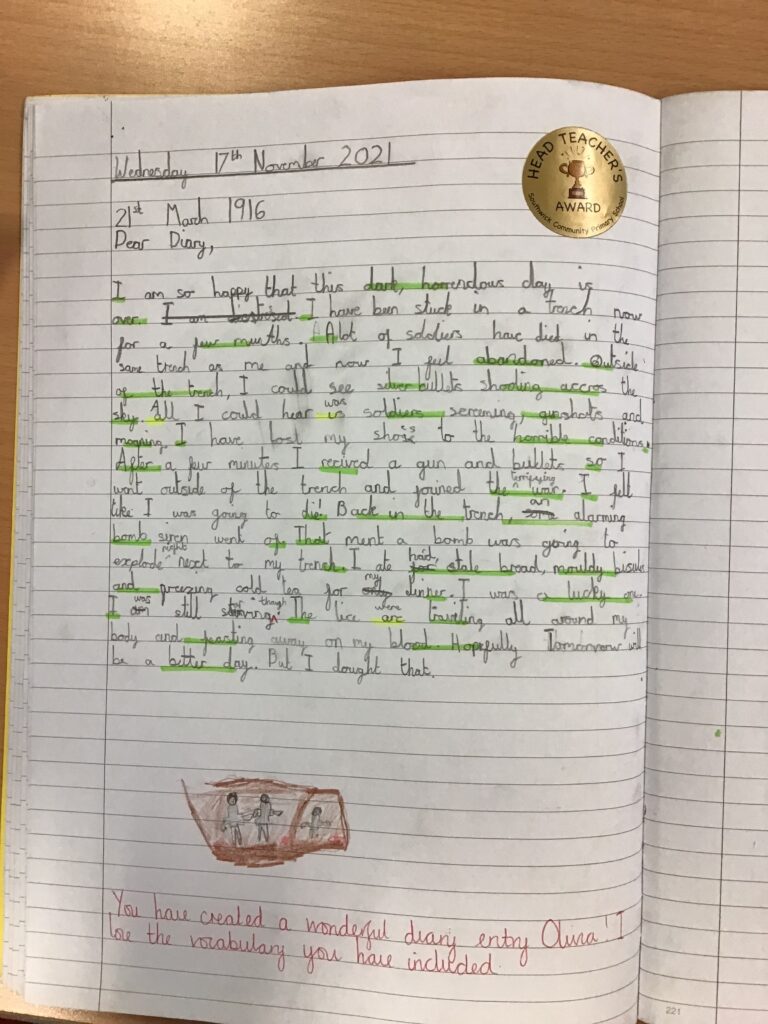 Wednesday 17th November 2021
HEAD TEACHER'S
AWARD
Southwick Community Primary School
21st March 1916
Dear Diary,
I am so happy that this dark, horrendous day is
over. I am. I have been stuck in a trench now
for a few munths. Alot of soldiers have died in the
same trench as me and now I feel abandoned. Outside
of the trench, I could see silver bullets shooting accros the
sky. All I could hear is was soldiers screming, gunshots and
moaning. I have lost my to the horrible conditions.
After a few minutes I recived a gun and bullets so I
went outside of the trench and joined the terrifying war. I felt
like I was going to die! Back in the trench, some an alarming
bomb siren went of. That ment a bomb was going to
explode right next to my trench. I ate for hard, stale bread, mouldy biscuits
and freezing cold tea for my dinner. I was a lucky one.
I am was still starving though. The lice are were traveling all around my
body and feasting away on my blood. Hopefully Tomorrow will
be a better day. But I dought that.
You have created a wonderful diary entry Olivia! I
love the vocabulary you have included.
221